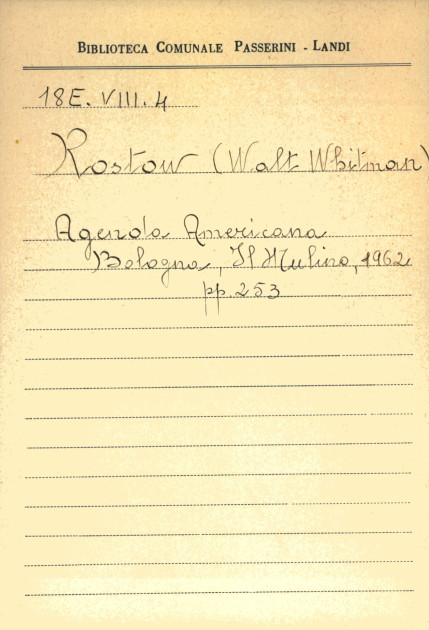 BIBLIOTECA COMUNALE PASSERINI - LANDI
18E. VIII. 4
Rostow (Walt Whitman)
Agenda Americana
Bologna, Il Mulino, 1962
pp. 253